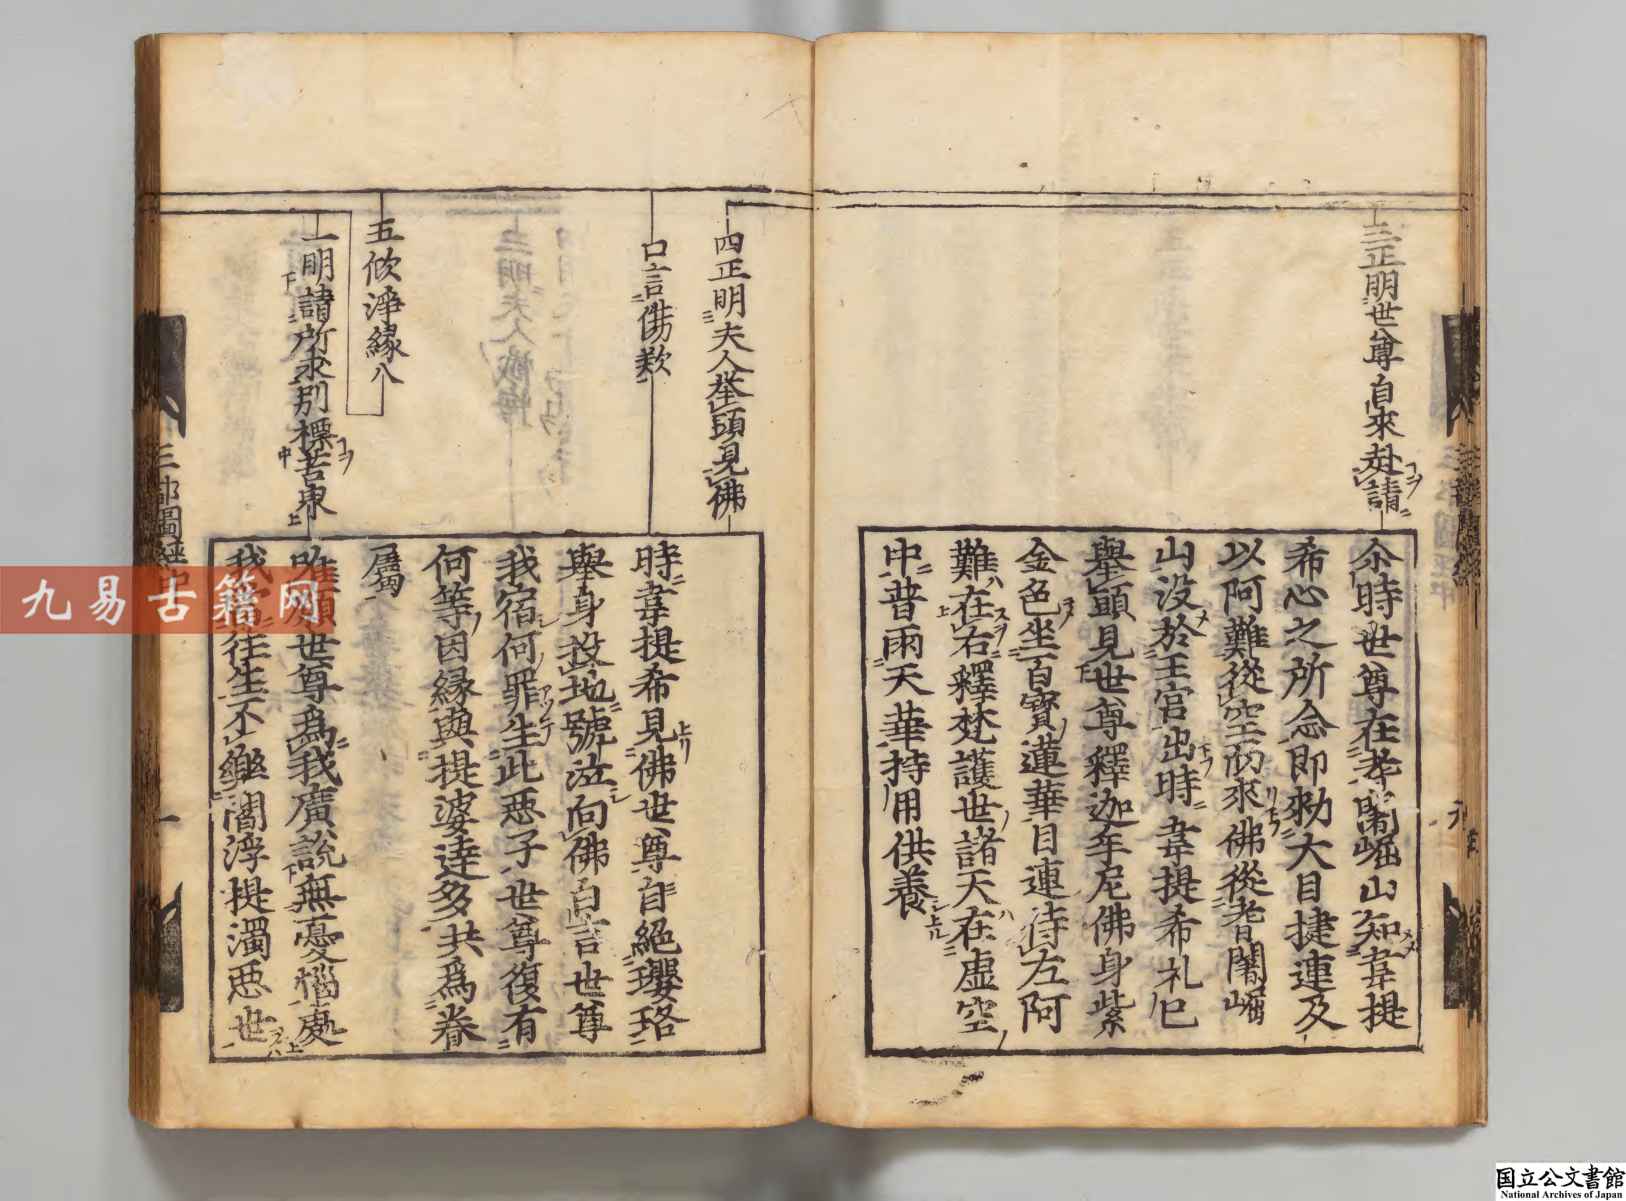 三正明世尊自來赴請
尒時世尊在耆闍崛山知韋提
希心之所念即勑大目揵連及
以阿難從空而來佛從耆闍崛
山没於王宮出時韋提希礼已
舉頭見世尊釋迦牟尼佛身紫
金色坐百寳蓮華目連侍左阿
難在右釋梵護世諸天在虛空
中普雨天華持用供養
四正明夫人舉頭見佛
口言傷歎
時韋提希見佛世尊自絕瓔珞
舉身投地號泣向佛白言世尊
我宿何罪生此惡子世尊復有
何等因縁與提婆達多共爲眷
屬
五欣淨縁八
一明請所求別標苦界
唯願世尊爲我廣說無憂惱處
我當往生不樂閻浮提濁惡世
三部圖經中
九易古籍网
国立公文書館
National Archives of Japan